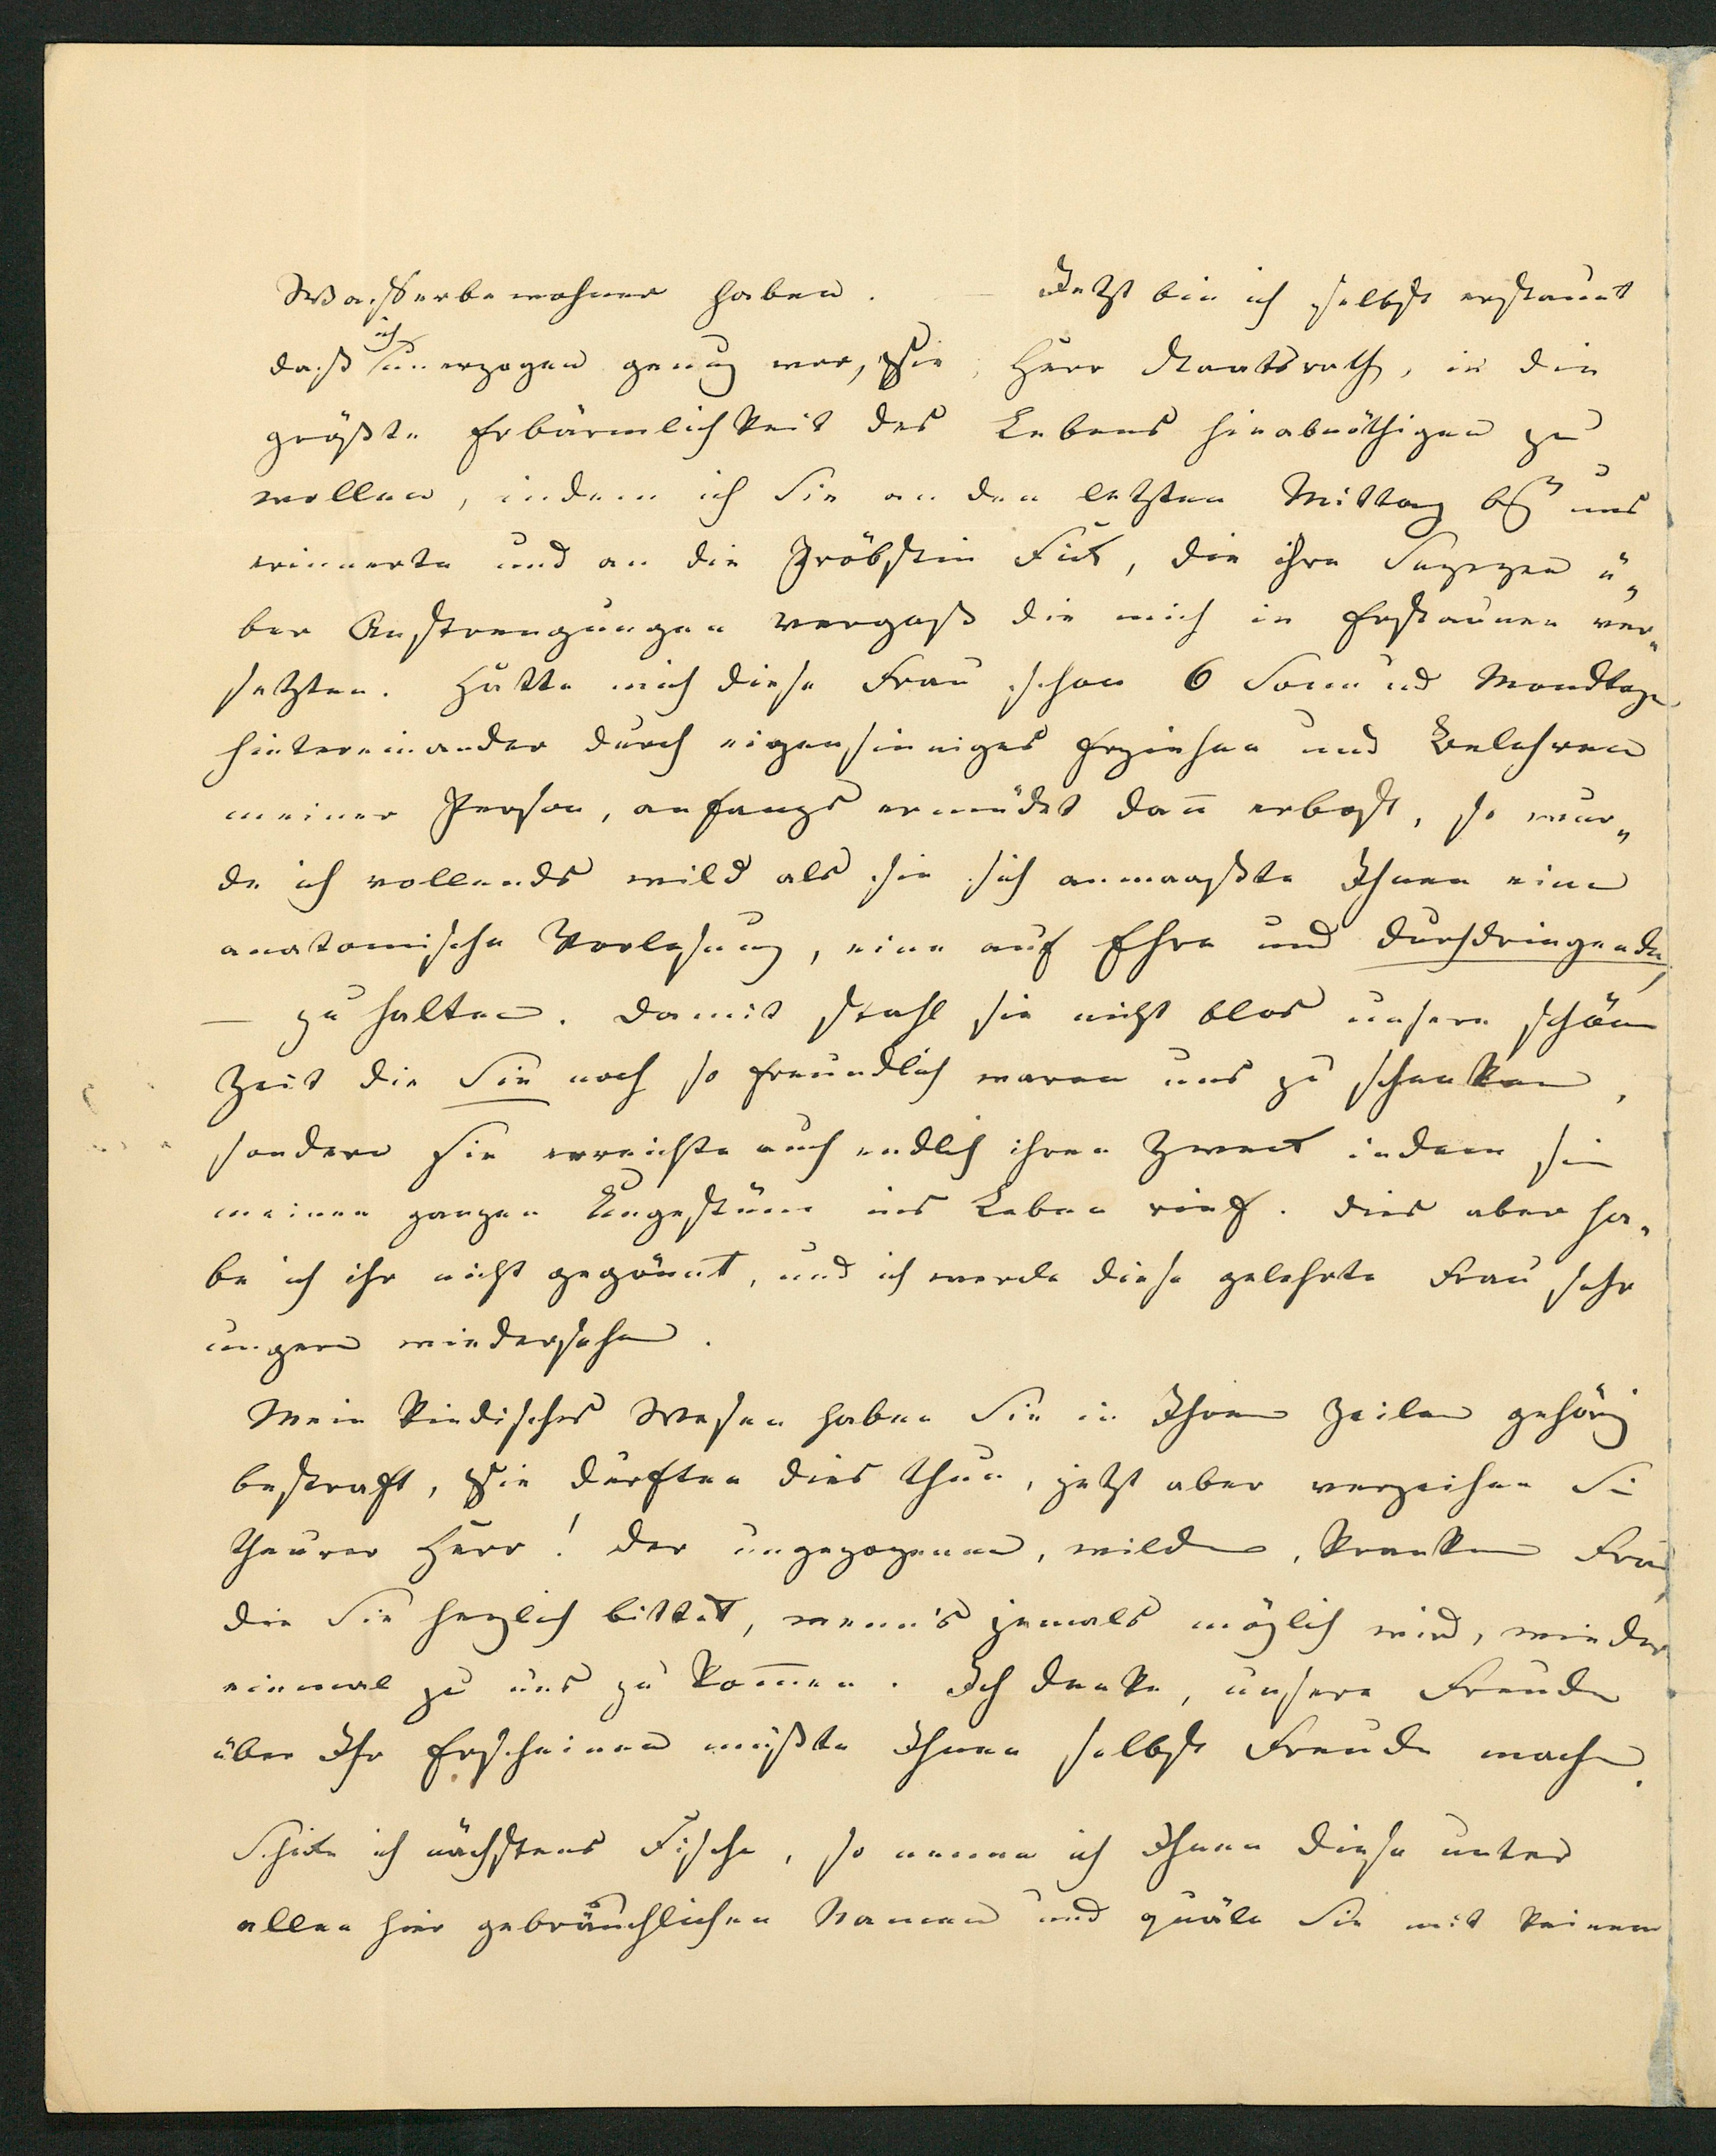 Wasserbewohner haben. — Jetzt bin ich selbst erstaunt
daß ich unerzogen genug war, Sie, Herr Staatsrath, in die
größte Erbärmlichkeit des Lebens hinabnöthigen zu
wollen, indem ich Sie an den letzten Mittag bei uns
erinnerte und an die Pröbstin Fick, die ihre Suppen ü„
ber Anstrengungen vergaß die mich in Erstaunen ver„
setzten. Hatte mich diese Frau schon 6 Sonn und Mondtage
hintereinander durch eigensinniges Erziehen und Belehren
meiner Person, anfangs ermüdet dan̄ erbost, so wur„
de ich vollends wild als sie sich anmaaßte Ihnen eine
anatomische Vorlesung, eine auf Ehre und durchdringende,
— zu halten. Damit stahl sie nicht blos unsere schöne
Zeit die Sie noch so freundlich waren uns zu schenken,
sondern sie erreichte auch endlich ihren Zweck indem sie
meinen ganzen Ungestüm ins Leben rief. Dies aber ha„
be ich ihr nicht gegönnt, und ich werde diese gelehrte Frau sehr
ungern wiedersehen.
Mein kindisches Wesen haben Sie in Ihren Zeilen gehörig
bestraft, Sie durften dies thun, jetzt aber verzeihen Sie
theurer Herr! der ungezogenen, wilden, kranken Frau,
die Sie herzlich bittet, wenn's jemals möglich wird, wieder
einmal zu uns zu kom̄en. Ich denke, unsere Freude
über Ihr Erscheinen müßte Ihnen selbst Freude machen.
Schicke ich nächstens Fische, so nenne ich Ihnen diese unter
allen hier gebräuchlichen Namen und quäle Sie mit keinem